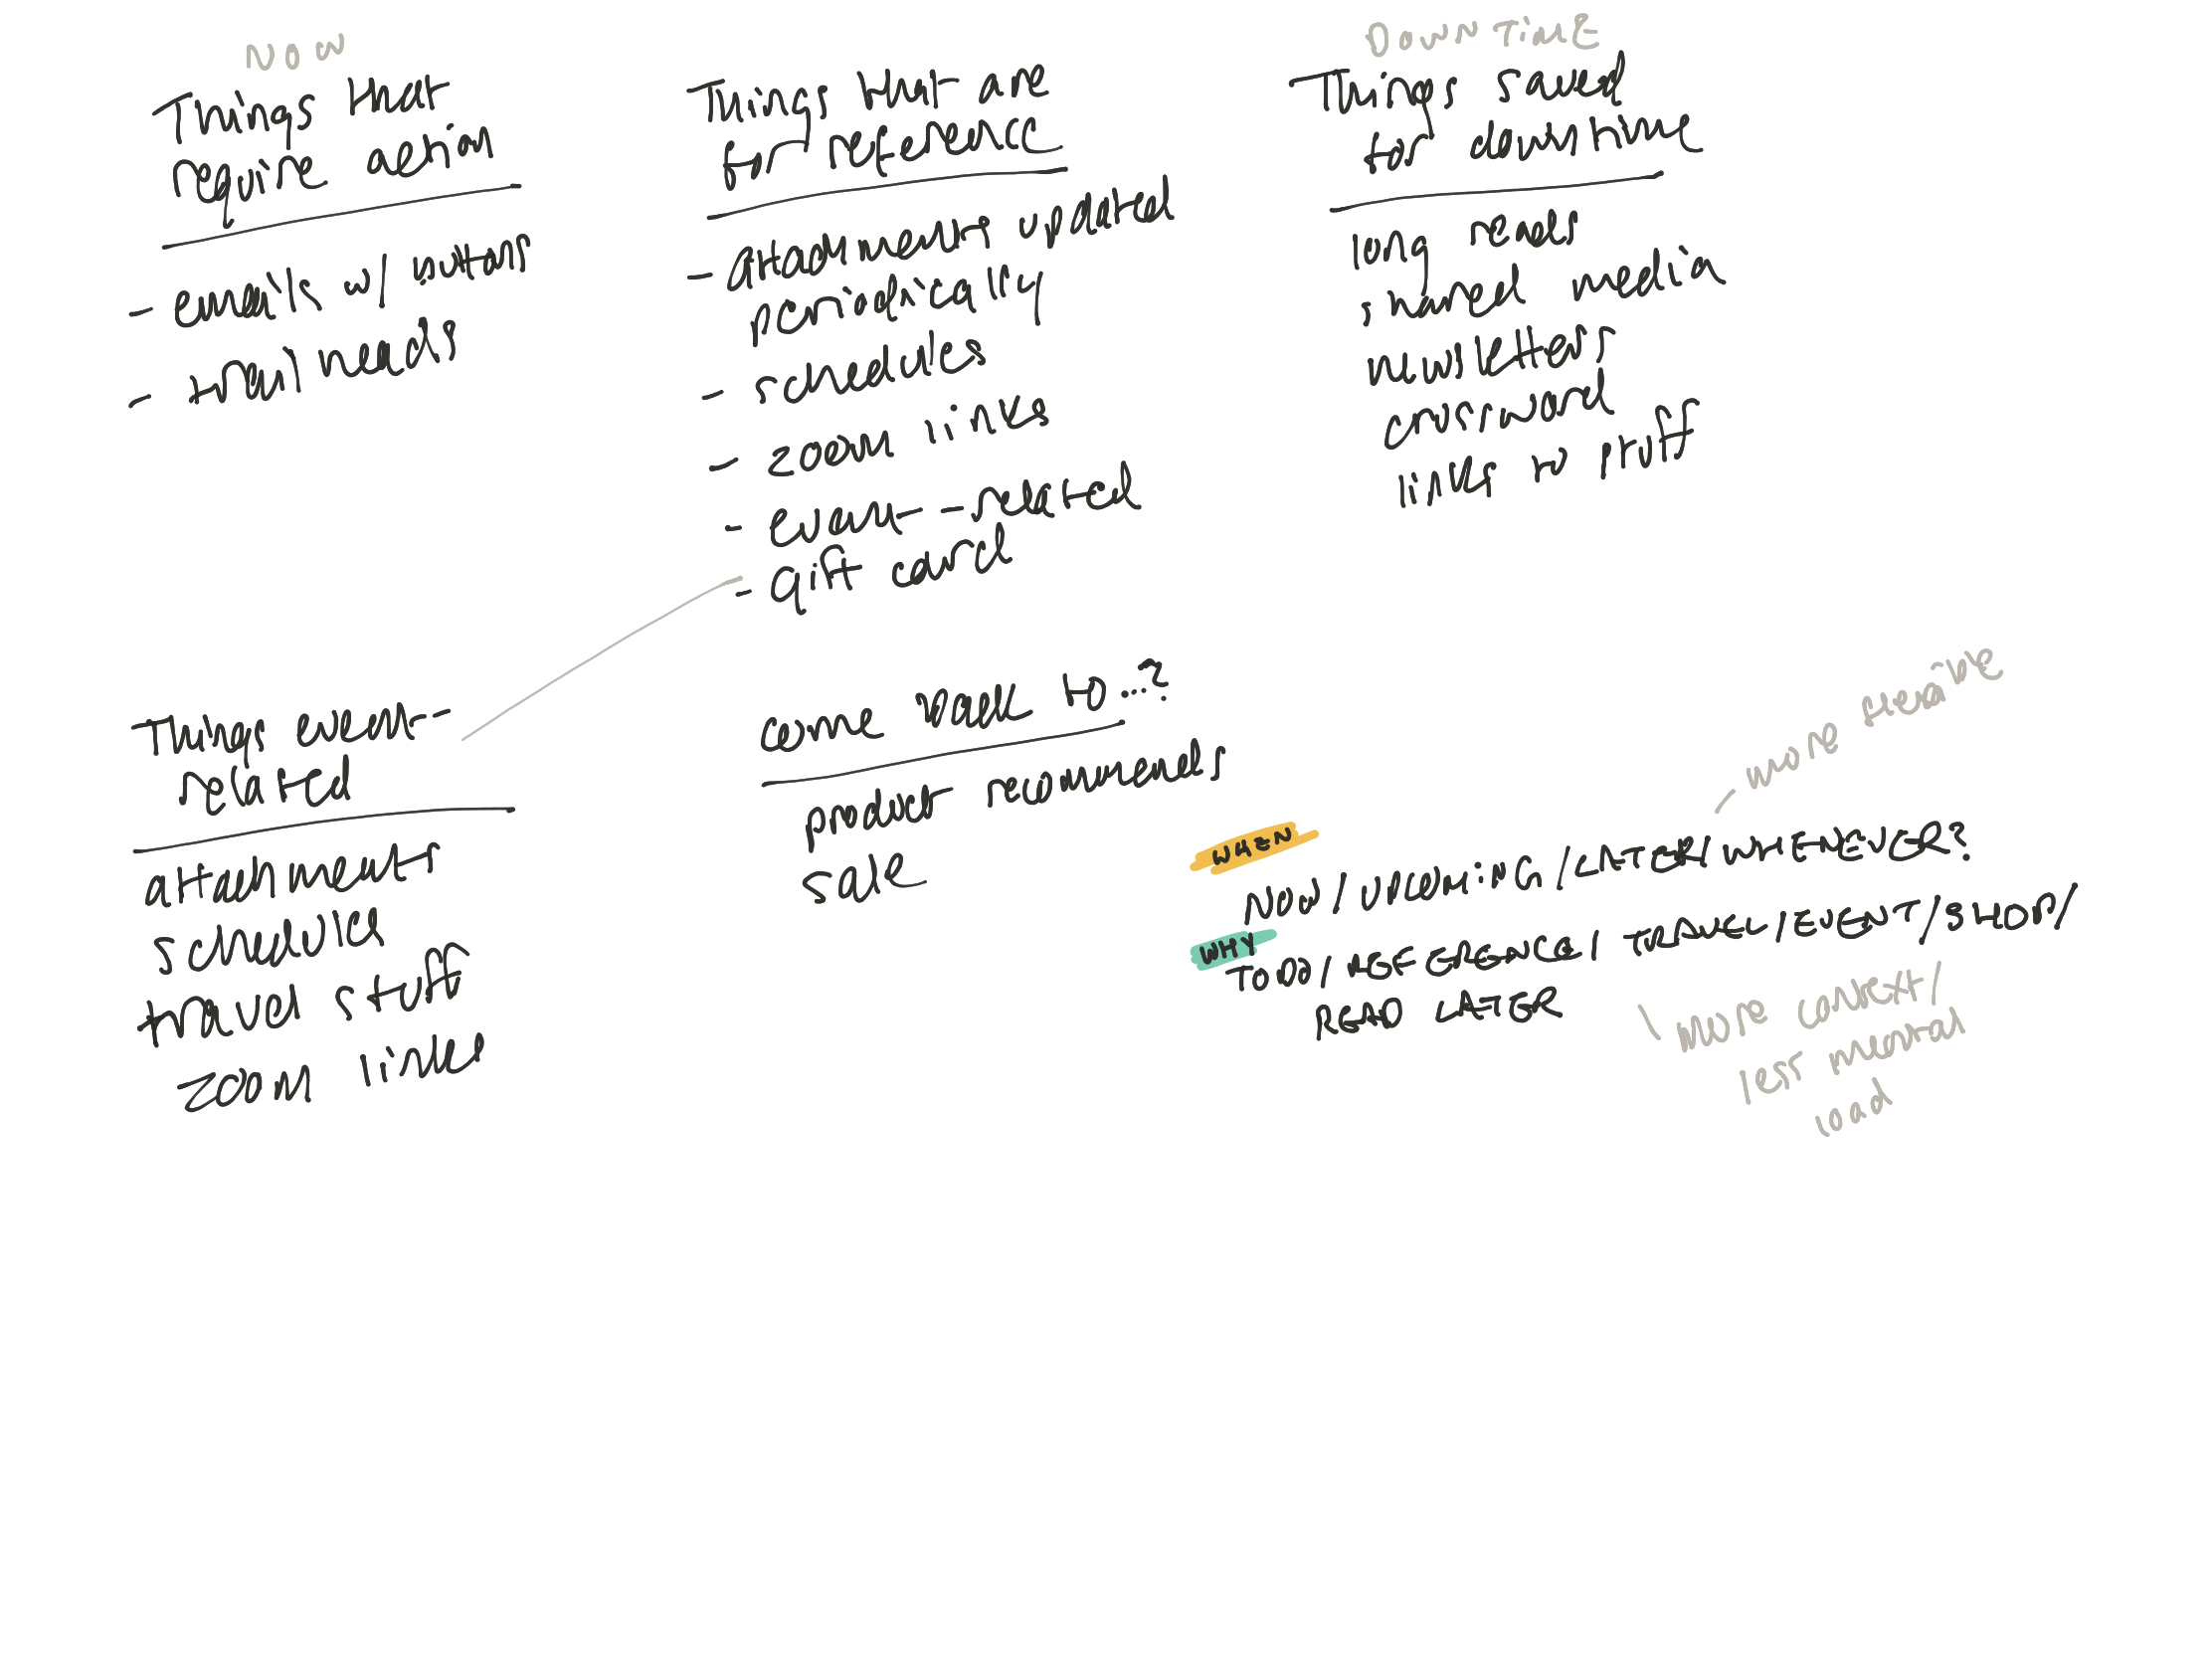 NOW
Things that
require action
- emails w/ buttons
- needs
Things that are
for reference
- attachments updated
periodically
- schedules
- zoom links
- event-related
- gift card
DOWNTIME
Things saved
for downtime
long reads
shared media
newsletters
crossword
links to stuff
Things event-
related
attachments
schedules
travel stuff
zoom links
come back to...?
product recommends
sale
- more flexible
WHEN
NOW / UPCOMING / LATER / WHENEVER?
WHY
TODO / REFERENCE / TRAVEL / EVENT / SHOP /
READ LATER
\ more context /
less mental
load